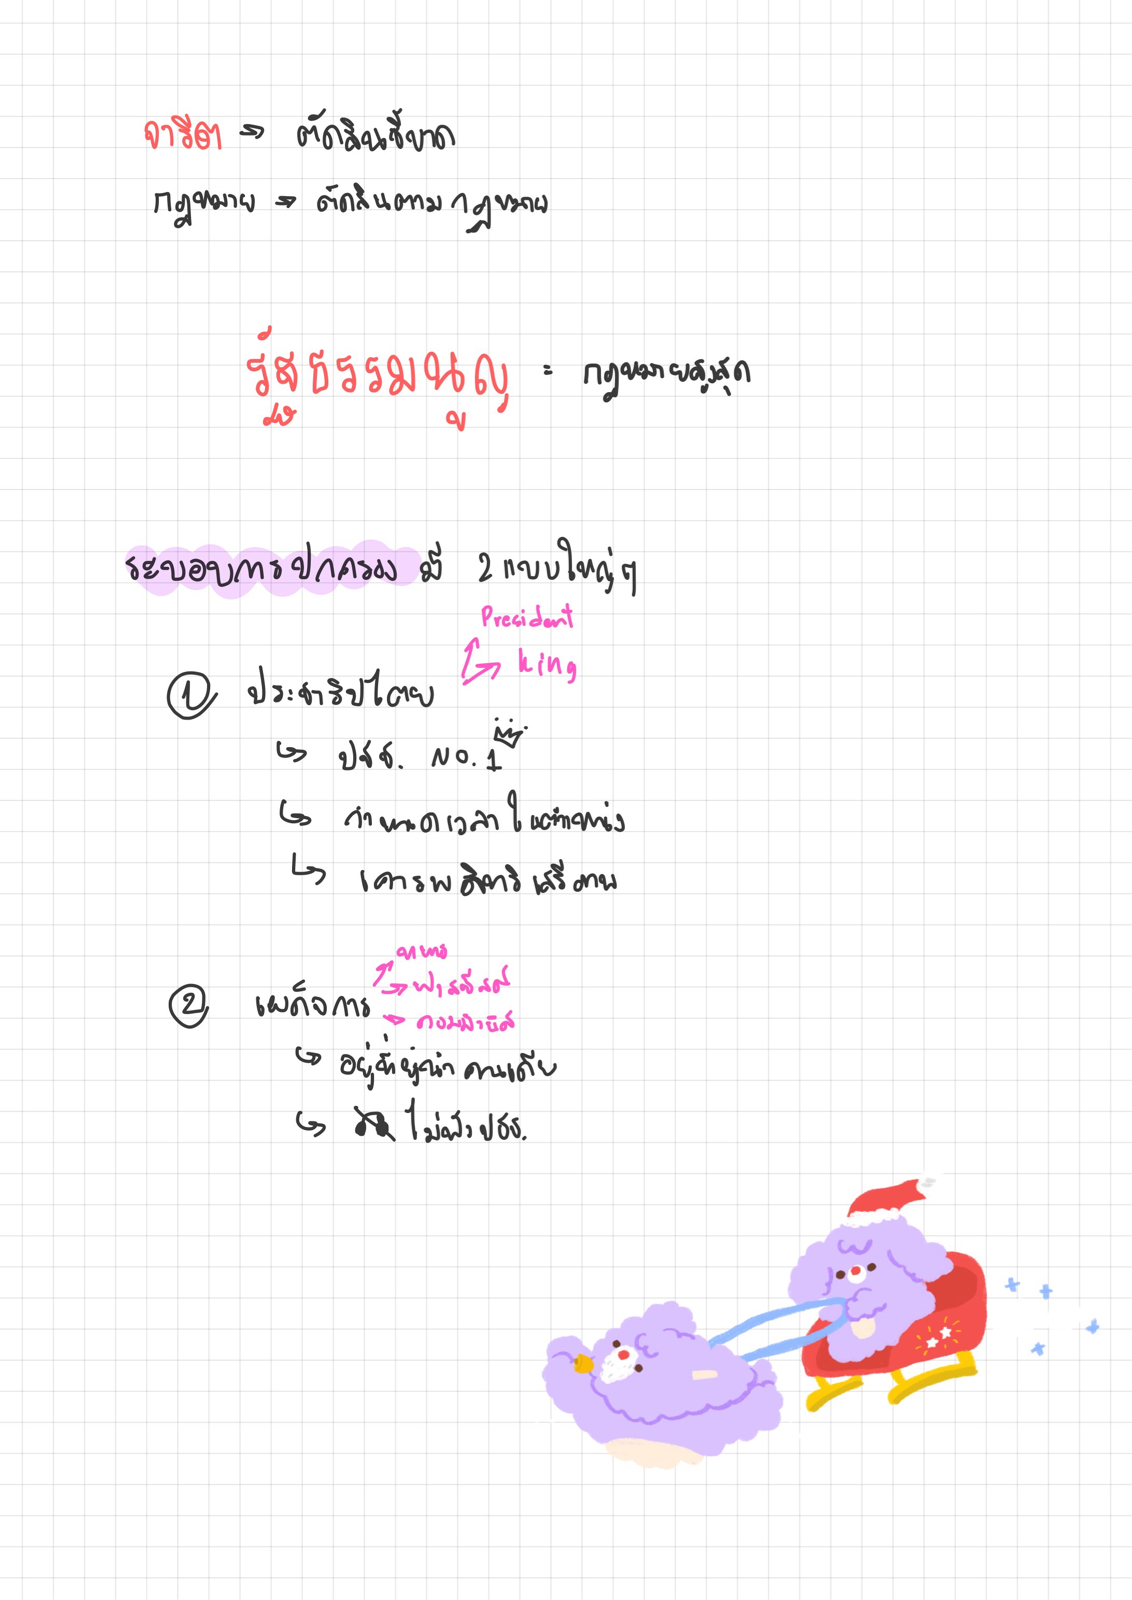 จารีต → ตัดสินชี้ขาด
กฎหมาย → ตัดสินตามกฎหมาย
รัฐธรรมนูญ = กฎหมายสูงสุด
ระบอบการปกครอง มี 2 แบบใหญ่ๆ
President
King
① ประชาธิปไตย
↳ ปชช. NO.1
↳ กำหนดเวลาในตำแหน่ง
↳ เคารพสิทธิเสรีภาพ
ทหาร
→ ฟาสซิสต์
② เผด็จการ
→ คอมมิวนิส
↳ อยู่ที่ผู้นำคนเดีย
↳ ไม่ฟังปชช.